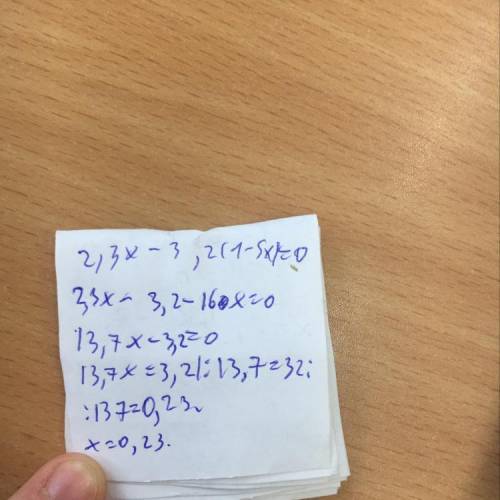 2,3x - 3,2(1-5x)=0
2,3x - 3,2-160x=0
13,7x-3,2=0
13,7x=3,2|:13,7=32:
:137=0,23.
x=0,23.